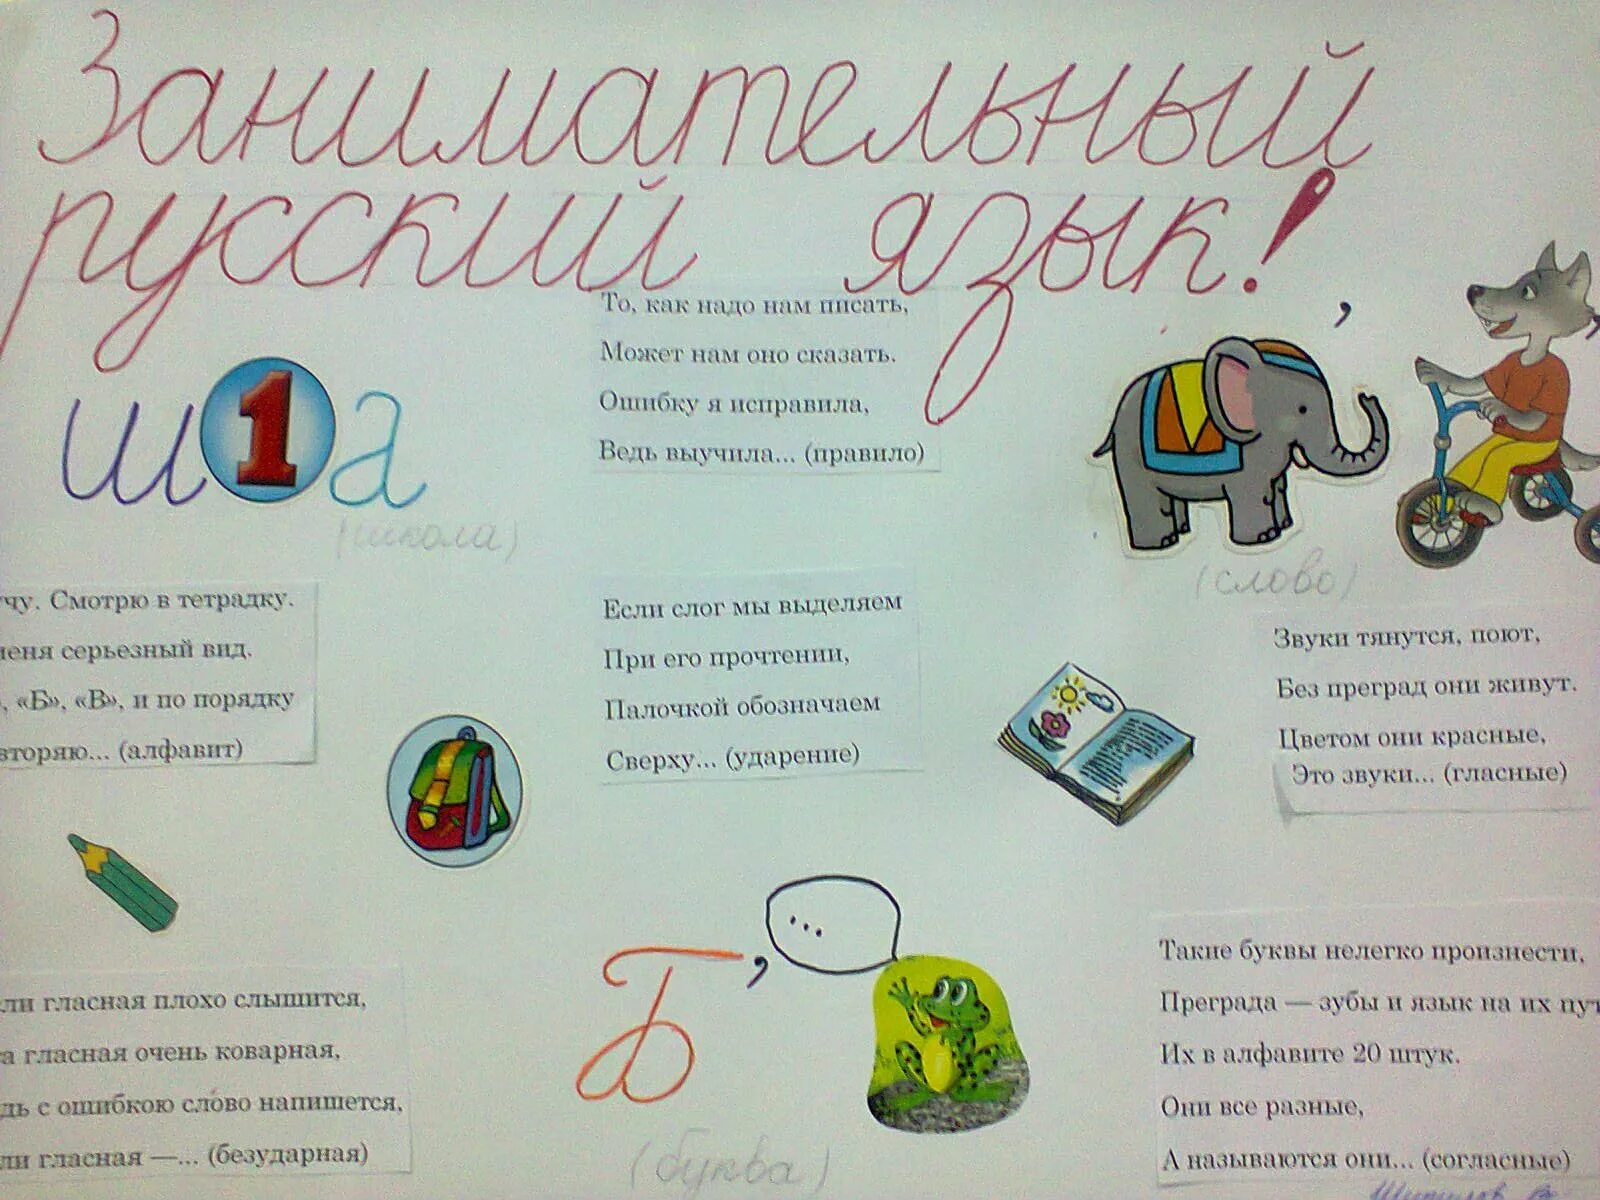 Занимательный
русский язык!
То, как надо нам писать,
Может нам оно сказать.
Ошибку я исправила,
Ведь выучила... (правило)
ш1а
(школа)
,
(слово)
учу. Смотрю в тетрадку.
меня серьезный вид.
, «Б», «В», и по порядку
вторяю... (алфавит)
Если слог мы выделяем
При его прочтении,
Палочкой обозначаем
Сверху... (ударение)
Звуки тянутся, поют,
Без преград они живут.
Цветом они красные,
Это звуки... (гласные)
ли гласная плохо слышится,
а гласная очень коварная,
дь с ошибкою слово напишется,
ли гласная —... (безударная)
Б, ...
(буква)
Такие буквы нелегко произнести,
Преграда — зубы и язык на их пут
Их в алфавите 20 штук.
Они все разные,
А называются они... (согласные)